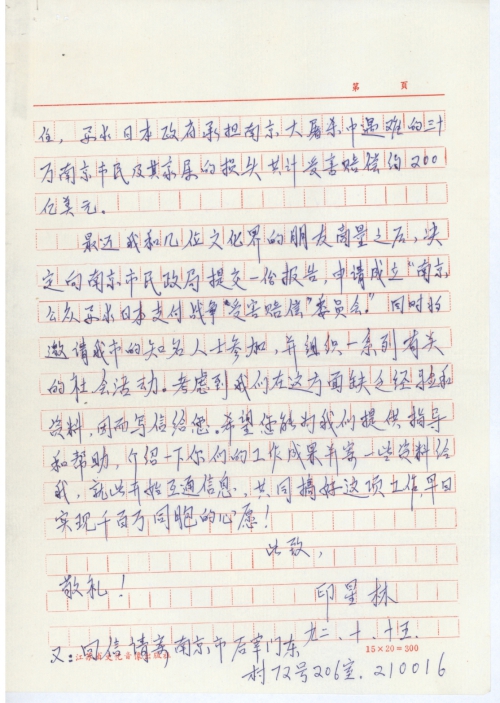 第 頁
任，要求日本政府承担南京大屠杀中遇难的三十
万南京市民及其家属的损失共计受害赔偿约200
亿美元。
最近我和几位文化界的朋友商量之后，决
定向南京市民政局提交一份报告，申请成立“南京
公众要求日本支付战争“受害赔偿”委员会。”同时将
邀请我市的知名人士参加，并组织一系列有关
的社会活动。考虑到我们在这方面缺乏经验和
资料，因而写信给您。希望您能为我们提供指导
和帮助，介绍一下你们的工作成果并寄一些资料给
我，就此开始互通信息，共同搞好这项工作，早日
实现千百万同胞的心愿！
此致，
敬礼！
印星林
九二.十.十五.
又：回信请寄南京市后宰门东
15×20=300
村72号206室. 210016